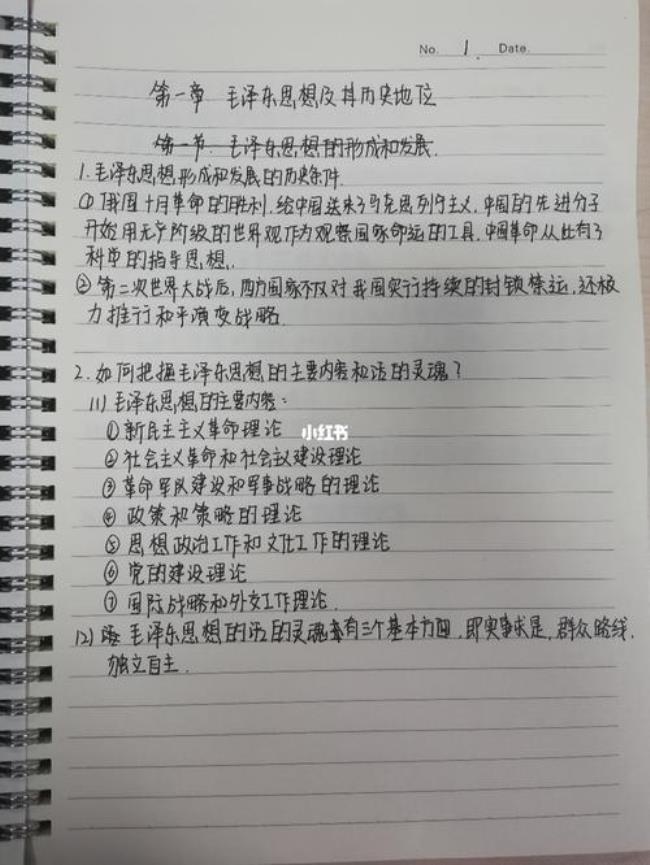 No. 1. Date.
第一章 毛泽东思想及其历史地位
第一节. 毛泽东思想的形成和发展.
1. 毛泽东思想形成和发展的历史条件.
① 俄国十月革命的胜利, 给中国送来了马克思列宁主义, 中国的先进分子
开始用无产阶级的世界观作为观察国家命运的工具, 中国革命从此有了
科学的指导思想.
② 第二次世界大战后, 西方国家不仅对我国实行持续的封锁禁运, 还极
力推行和平演变战略.
2. 如何把握毛泽东思想的主要内容和活的灵魂?
(1) 毛泽东思想的主要内容:
① 新民主主义革命理论
小红书
② 社会主义革命和社会主义建设理论
③ 革命军队建设和军事战略的理论
④ 政策和策略的理论
⑤ 思想政治工作和文化工作的理论
⑥ 党的建设理论
⑦ 国际战略和外交工作理论.
(2) 毛泽东思想的活的灵魂有三个基本方面, 即实事求是, 群众路线,
独立自主.